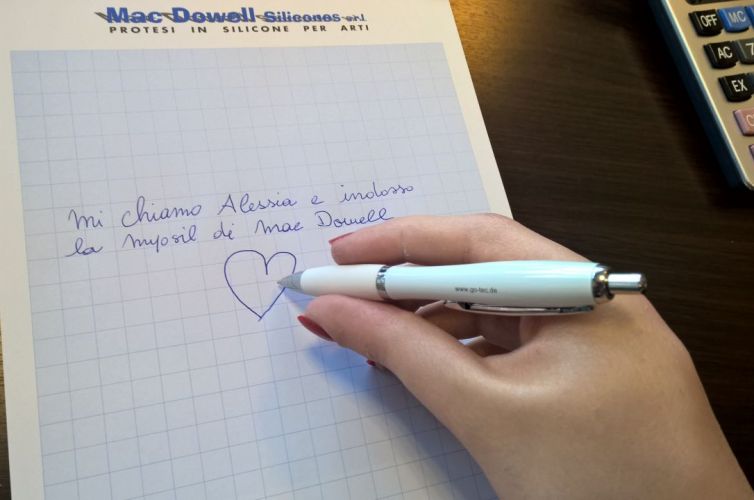 Mac Dowell Silicones srl
PROTESI IN SILICONE PER ARTI
Mi chiamo Alessia e indosso
la myosil di Mac Dowell
www.go-tec.de
OFF
MC
AC
7
EX
C